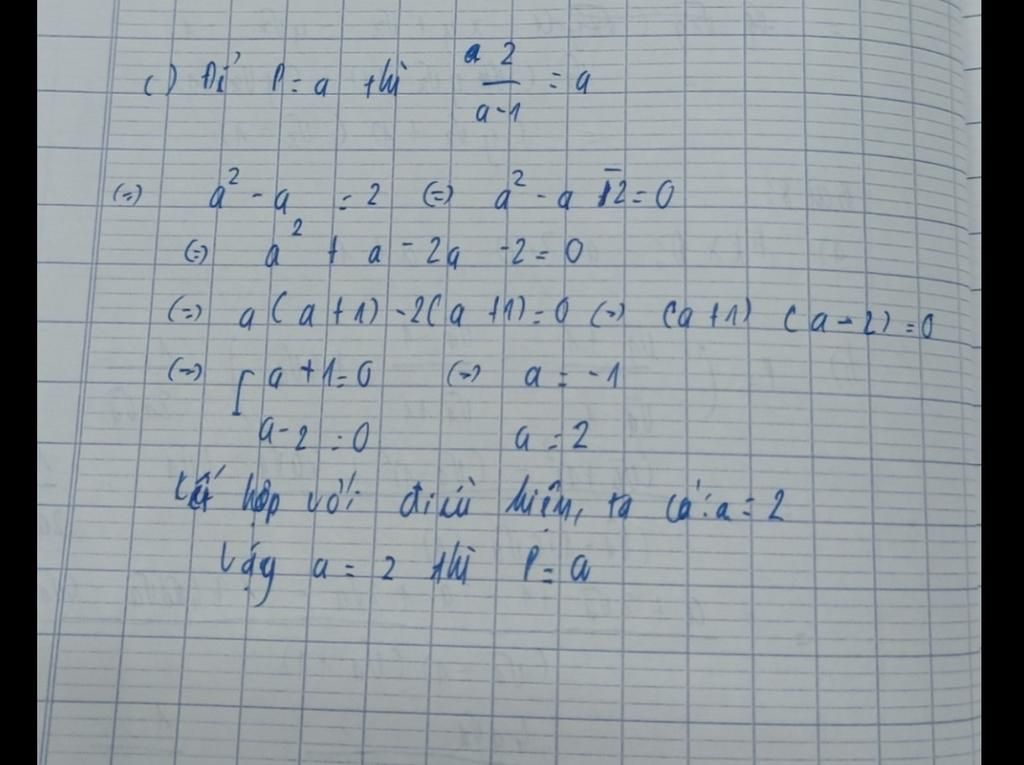 c) Để P = a thì 2/(a-1) = a
(=) a² - a = 2 (=) a² - a - 2 = 0
(=) a² + a - 2a - 2 = 0
(=) a(a+1) - 2(a+1) = 0 (=) (a+1) (a-2) = 0
(=) [ a+1 = 0 (=) a = -1
a-2 = 0 a = 2
kết hợp với điều kiện, ta có: a = 2
Vậy a = 2 thì P = a